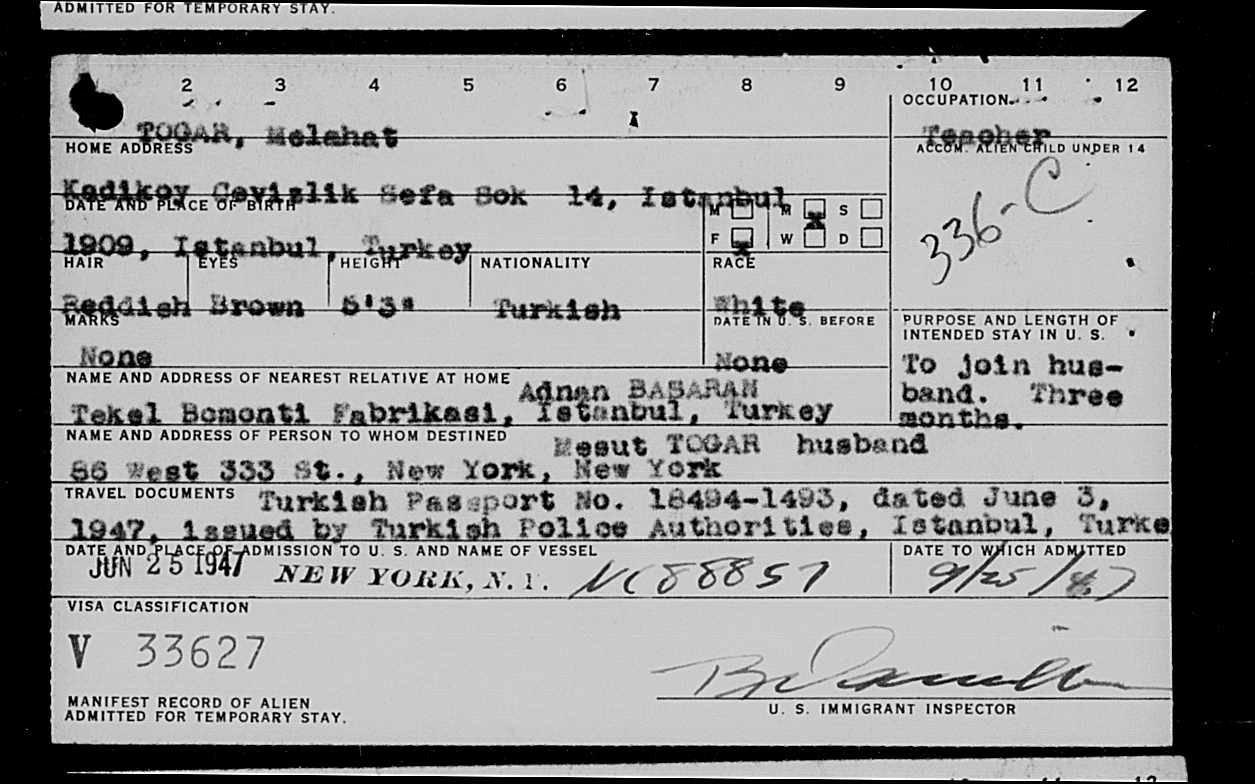 ADMITTED FOR TEMPORARY STAY.
2 3 4 5 6 7 8 9 10 11 12
OCCUPATION
TOGAR, Melahat
Teacher
HOME ADDRESS
ACCOM. ALIEN CHILD UNDER 14
Kadikoy Cevizlik Sefa Sok 14, Istanbul
336-C
DATE AND PLACE OF BIRTH
M M X S
1909, Istanbul, Turkey
F X W D
HAIR EYES HEIGHT NATIONALITY RACE
Reddish Brown 5'3" Turkish White
MARKS
DATE IN U. S. BEFORE
PURPOSE AND LENGTH OF
INTENDED STAY IN U. S.
None
None
To join hus-
band. Three
months.
NAME AND ADDRESS OF NEAREST RELATIVE AT HOME Adnan BASARAN
Tekel Bomonti Fabrikasi, Istanbul, Turkey
NAME AND ADDRESS OF PERSON TO WHOM DESTINED Mesut TOGAR husband
86 West 333 St., New York, New York
TRAVEL DOCUMENTS Turkish Passport No. 18494-1493, dated June 3,
1947, issued by Turkish Police Authorities, Istanbul, Turke
DATE AND PLACE OF ADMISSION TO U. S. AND NAME OF VESSEL
DATE TO WHICH ADMITTED
JUN 25 1947 NEW YORK, N. Y. NC 88857
9/25/47
VISA CLASSIFICATION
V 33627
MANIFEST RECORD OF ALIEN
ADMITTED FOR TEMPORARY STAY.
U. S. IMMIGRANT INSPECTOR